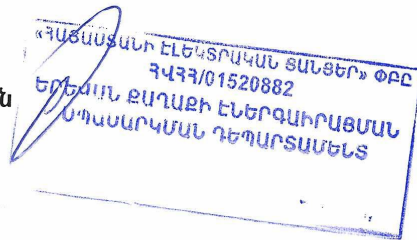 «ՀԱՅԱՍՏԱՆԻ ԷԼԵԿՏՐԱԿԱՆ ՑԱՆՑԵՐ» ՓԲԸ
ՀՎՀՀ/01520882
ԵՐԵՎԱՆ ՔԱՂԱՔԻ ԷՆԵՐԳԱԻՐԱՑՄԱՆ
ՍՊԱՍԱՐԿՄԱՆ ԴԵՊԱՐՏԱՄԵՆՏ